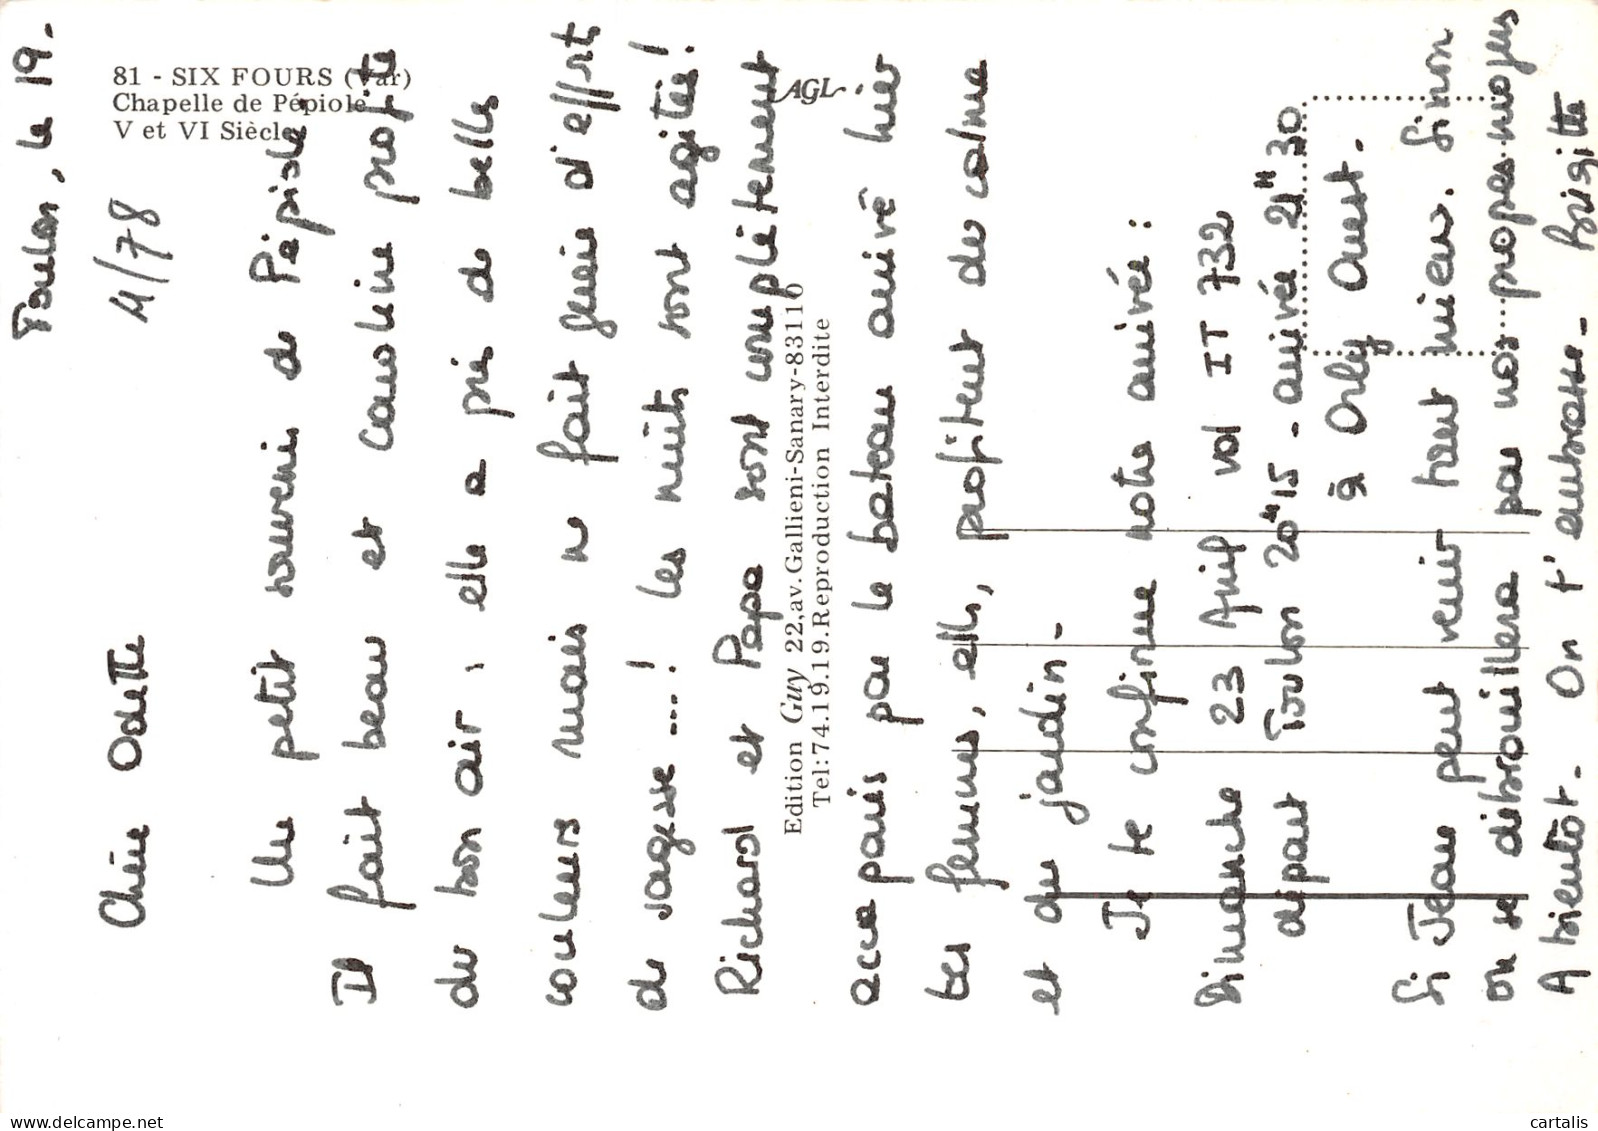 81 - SIX FOURS (Var)
Chapelle de Pépiole
V et VI Siècle
AGL
Edition Guy 22,av.Gallieni-Sanary-83110
Tel:74.19.19.Reproduction Interdite
Toulon, le 19.
4/78
Chère Odette
Un petit souvenir de Pépiole.
Il fait beau et Caroline profite
du bon air ; elle a pris de belles
couleurs mais ne fait guère d'effort
de sagesse ...! Les nuits sont agitées!
Richard et Papa sont complètement
accaparés par le bateau arrivé hier
les femmes, elles, profitent du calme
et du jardin -
Je te confirme notre arrivée :
Dimanche 23 Avril vol IT 732
départ Toulon 20H15 - arrivée 21H30
à Orly Ouest.
Si Jean peut venir tant mieux. Sinon
on se débrouillera par nos propres moyens
A bientôt. On t'embrasse - Brigitte
cartalis